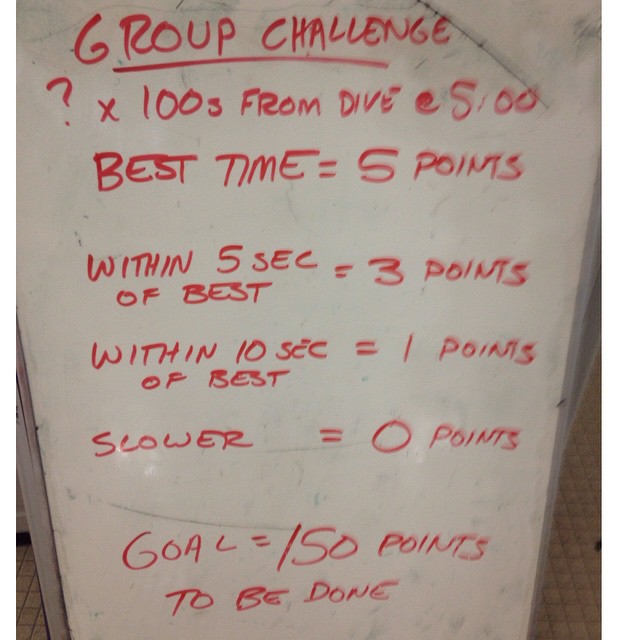 GROUP CHALLENGE
? x 100s FROM DIVE @ 5:00
BEST TIME = 5 POINTS
WITHIN 5 SEC = 3 POINTS
OF BEST
WITHIN 10 SEC = 1 POINTS
OF BEST
SLOWER = 0 POINTS
GOAL = 150 POINTS
TO BE DONE